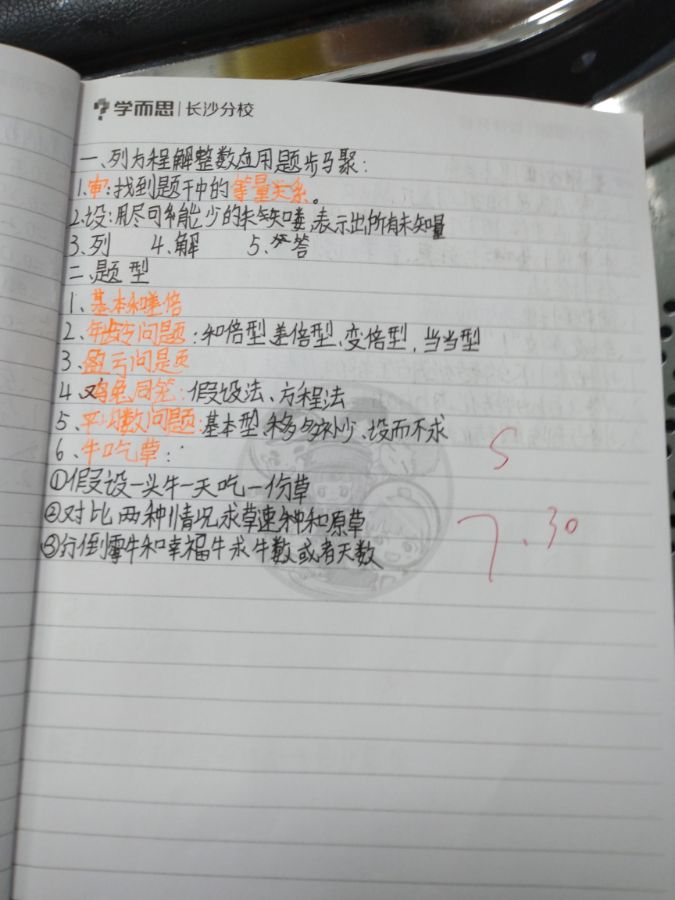 学而思 | 长沙分校
一、列方程解整数应用题步骤:
1.审:找到题干中的等量关系。
2.设:用尽可能少的未知量,表示出所有未知量
3.列 4.解 5.答
二、题型
1、基本和差倍
2.年龄问题:和倍型、差倍型、变倍型,当当型
3.盈亏问题
4.鸡兔同笼:假设法、方程法
5.平均数问题:基本型、移多补少、设而不求
6、牛吃草:
①假设一头牛一天吃一份草
②对比两种情况求草速种和原草
③分倒霉牛和幸福牛求牛数或者天数
S
7.30